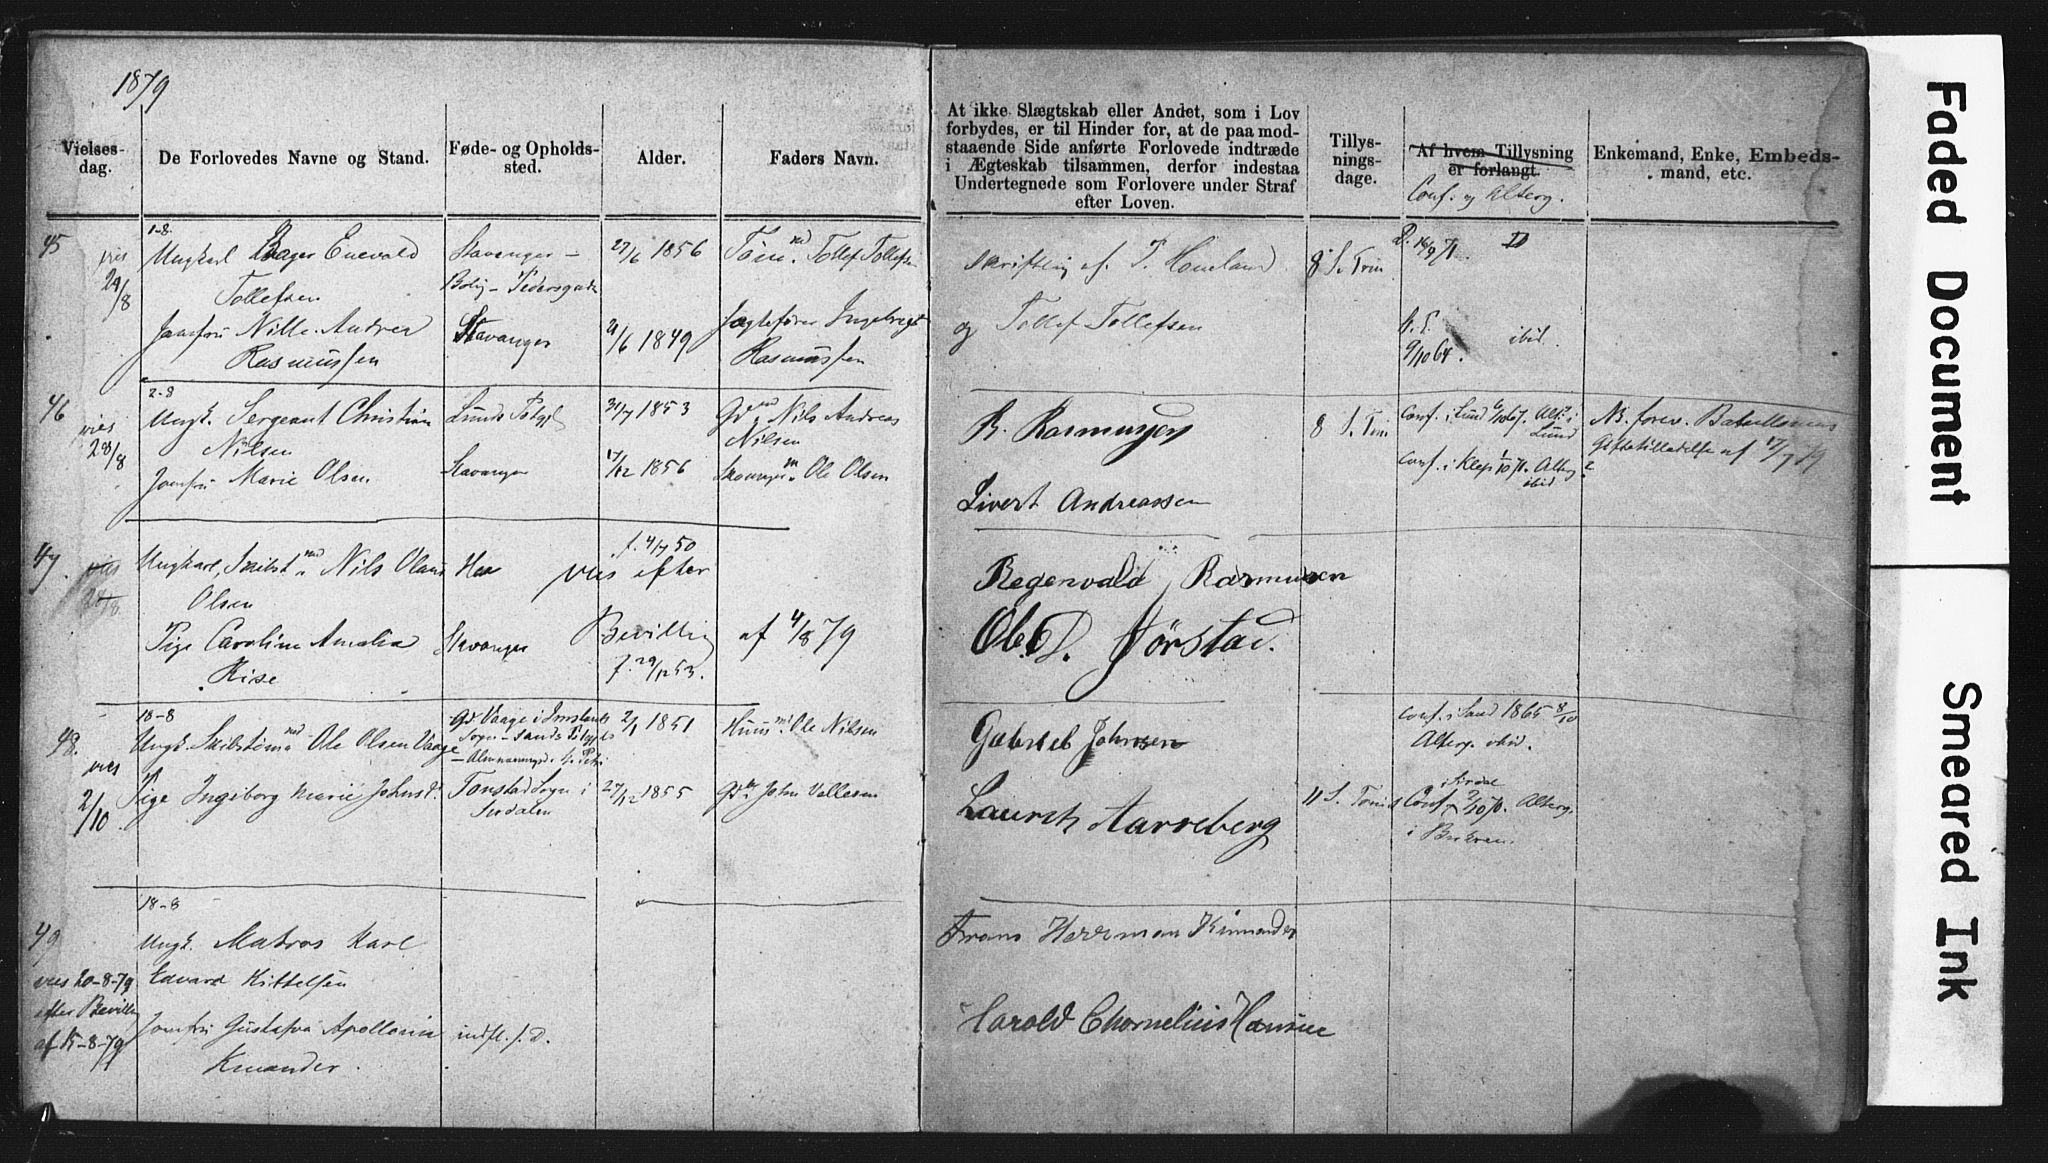 1879
Vielses-
dag.
De Forlovedes Navne og Stand.
Føde- og Opholds-
sted.
Alder.
Faders Navn.
At ikke Slægtskab eller Andet, som i Lov
forbydes, er til Hinder for, at de paa mod-
staaende Side anførte Forlovede indtræde
i Ægteskab tilsammen, derfor indestaa
Undertegnede som Forlovere under Straf
efter Loven.
Tillys-
nings-
dage.
Af hvem Tillysning
er forlangt.
Conf. og Alterg.
Enkemand, Enke, Embeds-
mand, etc.
45
1-8.
vies
29/8
Ungkarl Enevald
Tollefsen
Stavanger -
Bolig - Pedersgade
27/6 1856
Tollef Tollefsen
Skriftlig af T. Houland
8 S. Trin
16/9 71.
Jomfru Nille Andrea
Rasmussen
Stavanger
21/6 1849
Jagtefører Ingebregt
Rasmussen
og Tollef Tollefsen
9/10 64.
ibid.
46
2-8
vies
28/8
Ungk. Sergeant Christian
Nilsen
Lunds
31/7 1853
Nils Andreas
Nilsen
R. Rasmussen
8 S. Trin
Conf. i Lund Alt. i
Lund
NB. forev. Batallionens
Giftetilladelse af 17/7 79
Jomfru Marie Olsen
Stavanger
17/12 1856
Ole Olsen
Conf. i Klep Alterg
ibid
Sivert Andreassen
47.
vies
28/8.
Ungkarl, Nils Olaus
Olsen
Hna
f. 4/7 50
vies efter
Regenvald Rasmussen
Pige Caroline Amalia
Rise
Stavanger
Bevilling af 4/8 79
f. 29/12 53.
Ole D. Jørstad.
48.
18-8
vies
2/10
Ungk. Ole Olsen Vaage
Vaage i Imslands
Sogn - Sands
2/1 1851
Ole Nilsen
Gabriel Johnsen
Conf. i Sand 1865 8/10
Alterg. ibid.
Pige Ingeborg Marie Johnsd.
Tonstad Sogn i
Sirdalen
27/12 1855
John Vallesen
Lauritz Aarreberg
11 S. Trinis
i Sirdal
Conf 2/10 70. Alterg.
i
49
18-8
vies 20-8-79
efter Bevilling
af 15-8-79
Ungk. Matros Karl
Edvard Kittelsen
Frans Herrman Kinnander
Jomfru Gustafva Apollonia
Kinander.
indfl. f. D.
Harold Chornelius Hansen
Faded Document
Smeared Ink